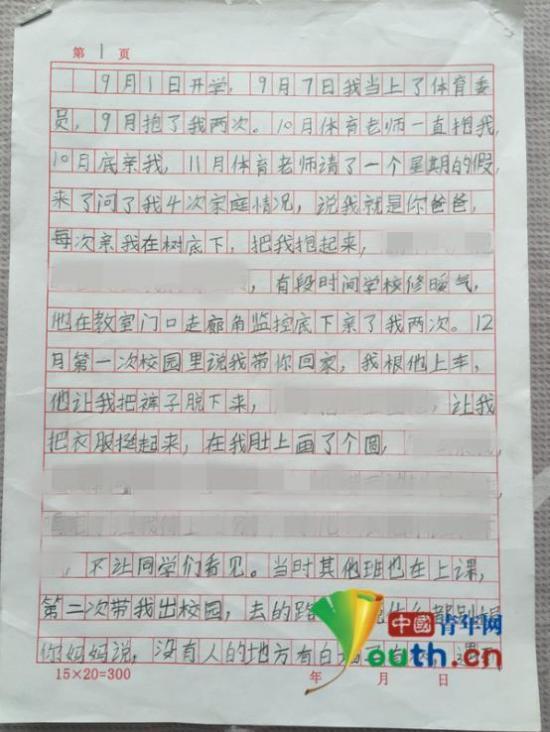 第 1 页
9月1日开学，9月7日我当上了体育委
员，9月抱了我两次。10月体育老师一直抱我，
10月底亲我，11月体育老师请了一个星期的假，
来了问了我4次家庭情况，说我就是你爸爸，
每次亲我在树底下，把我抱起来，
，有段时间学校修暖气，
他在教室门口走廊角监控底下亲了我两次。12
月第一次校园里说我带你回家，我根他上车，
他让我把裤子脱下来，，让我
把衣服起来，在我肚上画了个圆，
，不让同学们看见。当时其他班也在上课，
第二次带我出校园，去的路
你妈妈说，没有人的地方有白
15×20=300 年 月 日
中國青年网
Youth.cn